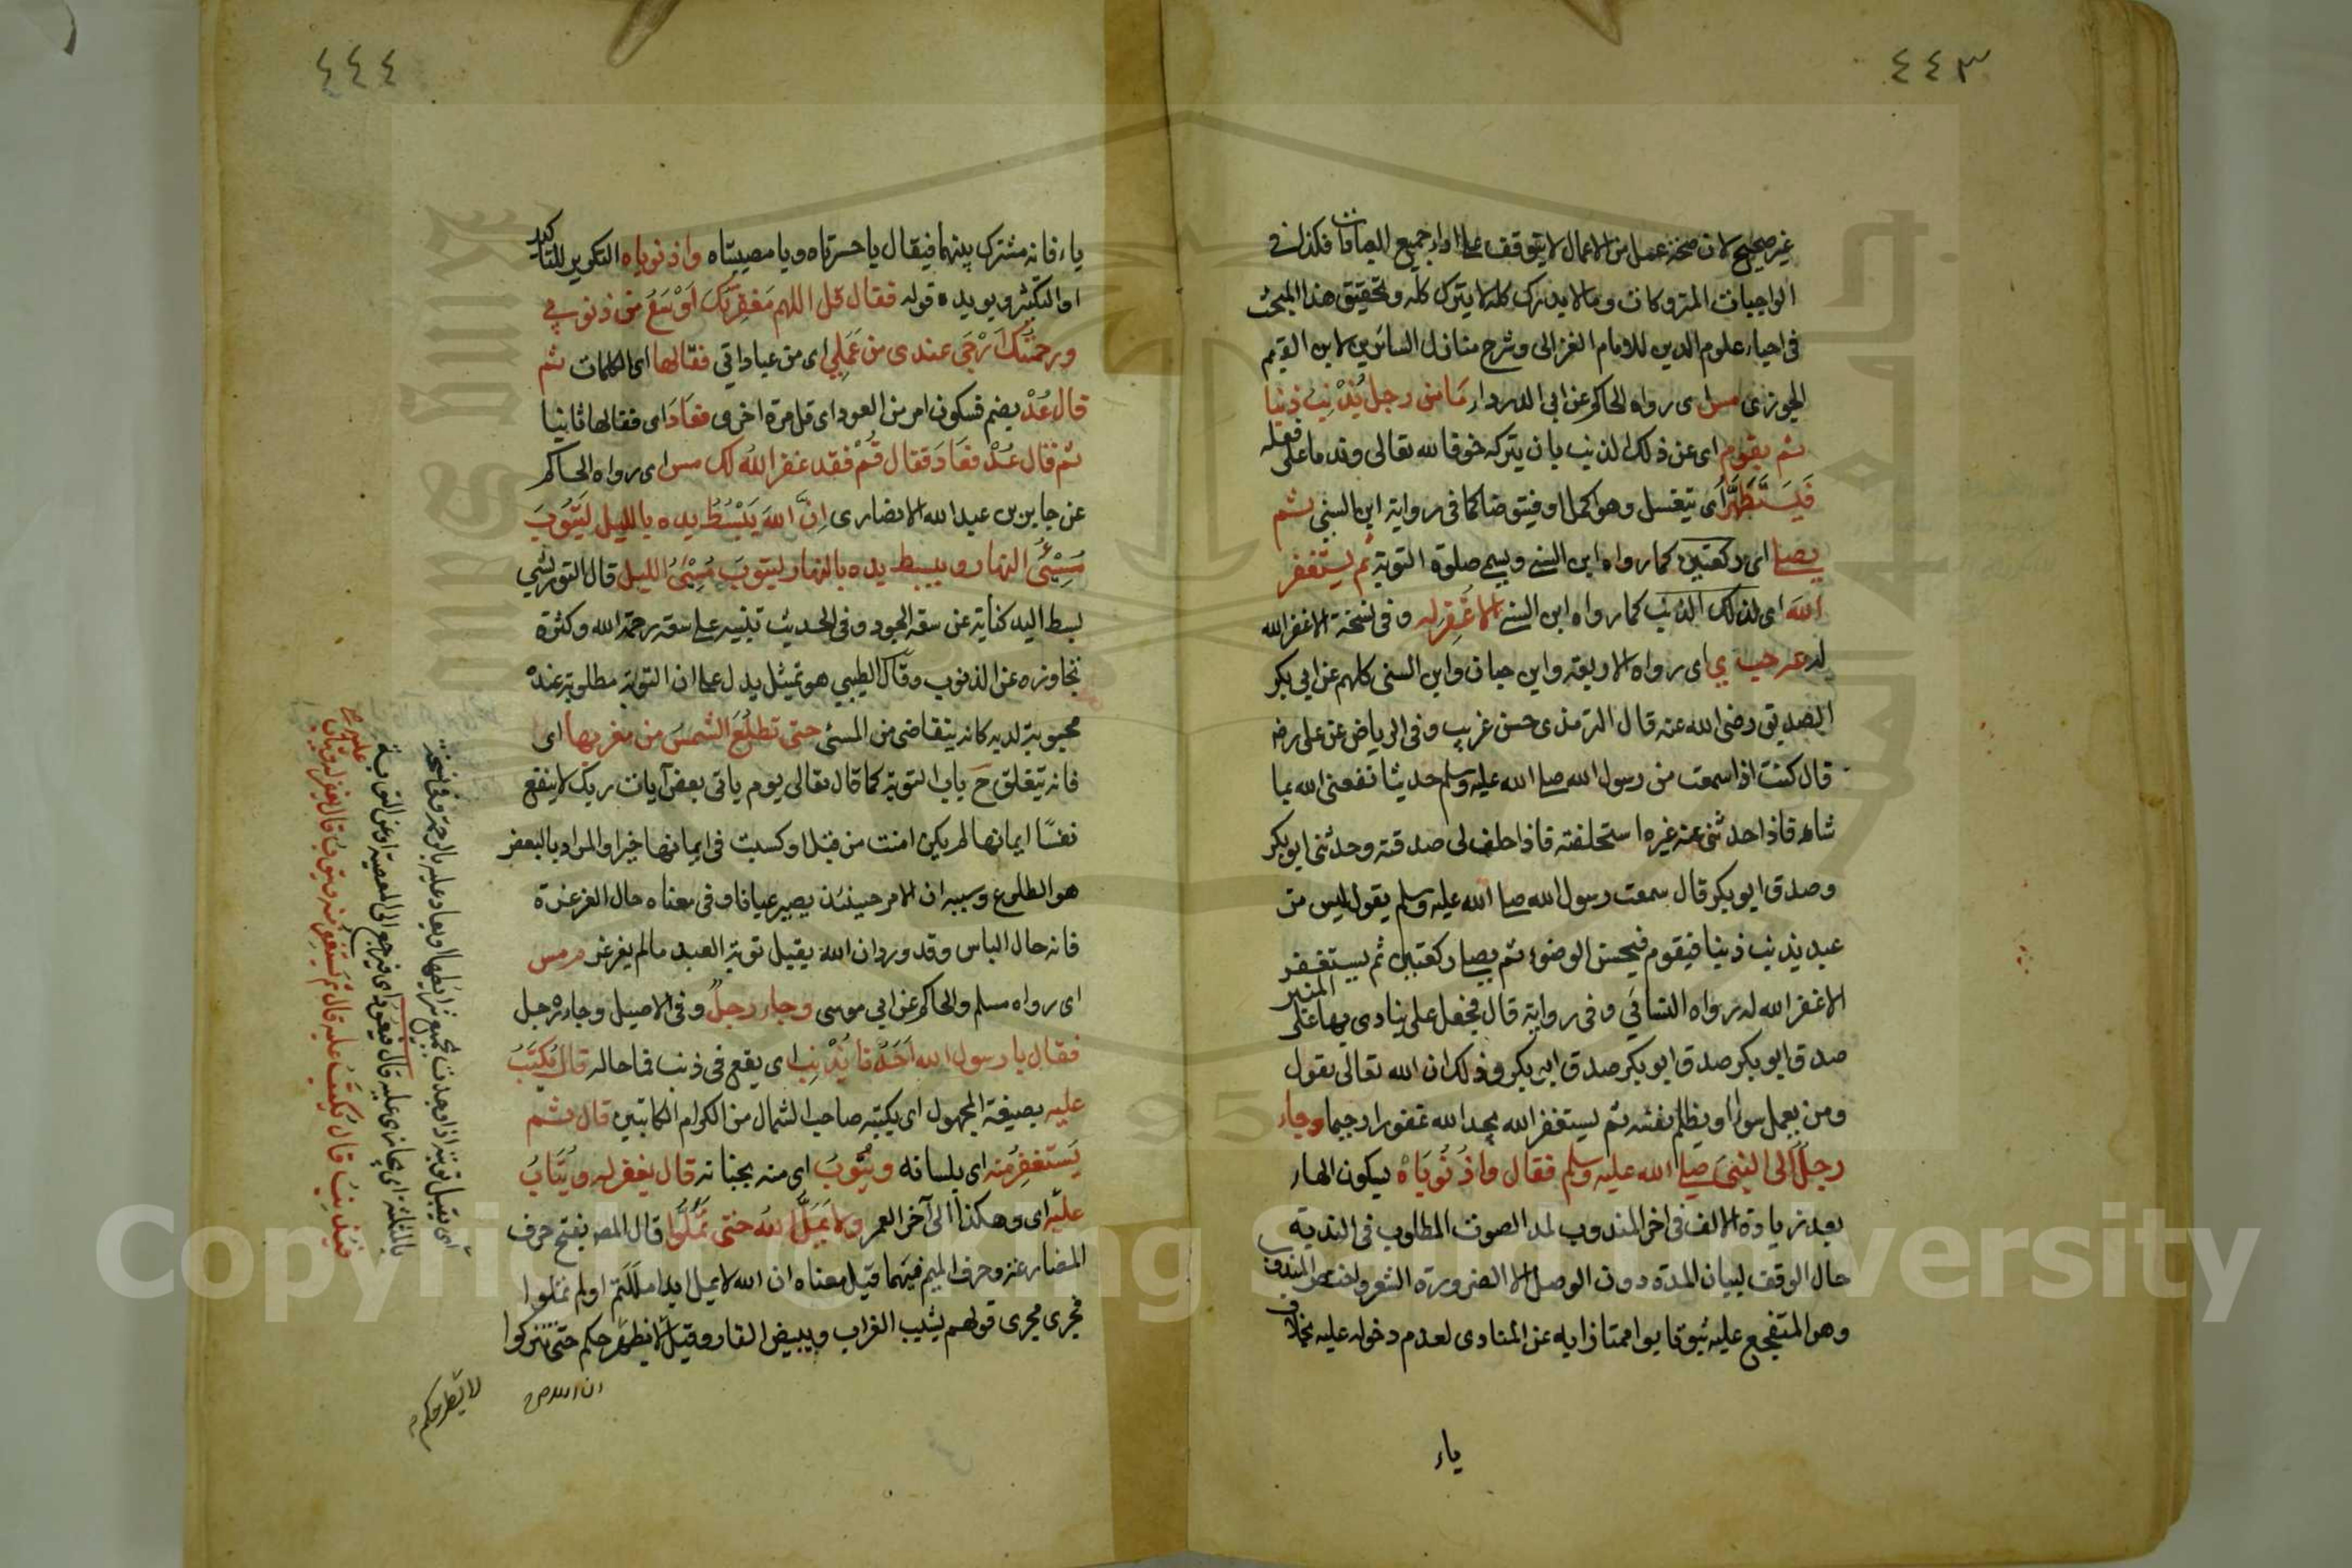 ٤٤٣
غير صحيح لان صحة عمل من الاعمال لا يتوقف على اداء جميع العبادات فكذلك في
الواجبات المتروكات وما لا يدرك كله لا يترك كله وتحقيق هذا المبحث
في احياء علوم الدين للامام الغزالى وشرح منازل السائرين لابن القيم
الجوزى مس اى رواه الحاكم عن ابى الدرداء مَا من رجل يُذْنِبُ ذنبا
ثم يقوم اى عن ذلك الذنب بان يتركه خوفا لله تعالى وندما على فعله
فَيَتَطَهَّرُ اى يتغسل وهو اكمل او فيتوضا كما فى رواية ابن السنى ثم
يصلى اى ركعتين كما رواه ابن السنى ويسمى صلوة التوبة ثم يستغفر
الله اى لذلك الذنب كما رواه ابن السنى الا غُفِرَ له وفى نسخة الا غفر الله
له عه حب ى اى رواه الاربعة وابن حبان وابن السنى كلهم عن ابى بكر
الصديق رضى الله عنه قال الترمذى حسن غريب وفى الرياض عن على رضه
قال كنت اذا سمعت من رسول الله صلى الله عليه وسلم حديثا نفعنى الله بما
شاء فاذا حدثنى عنه غيره استحلفته فاذا حلف لى صدقته وحدثنى ابو بكر
وصدق ابو بكر قال سمعت رسول الله صلى الله عليه وسلم يقول ليس من
عبد يذنب ذنبا فيقوم فيحسن الوضوء ثم يصلى ركعتين ثم يستغفر
الا غفر الله له رواه النسائى وفى رواية قال فجعل على ينادى بها على المنبر
صدق ابو بكر صدق ابو بكر صدق ابو بكر وذلك ان الله تعالى يقول
ومن يعمل سوءا او يظلم نفسه ثم يستغفر الله يجد الله غفورا رحيما وجاء
رجلٌ الى النبى صلى الله عليه وسلم فقال واذُنُوبَاهْ بسكون الهاء
بعد زيادة الالف فى اخر المندوب لمد الصوت المطلوب فى الندبة
حال الوقف لبيان المدة دون الوصل الا لضرورة الشعر واختص المندوب
وهو المتفجع عليه بوا ممتازا به عن المنادى لعدم دخوله عليه بخلاف
ياء
٤٤٤
ياء فانه مشترك بينهما فيقال يا حسرتاه ويا مصيبتاه واذنوباه التكرير للتاكيد
او التكثير ويويده قوله فقال قل اللهم مَغفِرتُكَ اَوْسَعُ من ذنوبي
ورحمتُك اَرْجَى عندى من عَمَلِي اى من عباداتى فقالها اى الكلمات ثم
قال عُدْ بضم فسكون امر من العود اى قل مرة اخرى فعَادَ اى فقالها ثانيا
ثم قال عُدْ فعَادَ فقال قُمْ فقد غفر اللهُ لك مس اى رواه الحاكم
عن جابر بن عبد الله الانصارى اِنَّ اللهَ يَبْسُطُ يده بالليل لِيَتُوبَ
مُسِيْئُ النهار ويبسط يده بالنهار ليتوبَ مُسِئُ الليل قال التوربشتي
بسط اليد كناية عن سعة الجود وفى الحديث تنبيه على سعة رحمة الله وكثرة
تجاوزه عن الذنوب وقال الطيبي هو تمثيل يدل على ان التوبة مطلوبة عنده
محبوبة لديه كانه يتقاضى من المسئ حتى تطلُعَ الشمسُ من مغربها اى
فانه يتغلق ح باب التوبة كما قال تعالى يوم ياتى بعض آيات ربك لا ينفع
نفسًا ايمانها لم يكن امنت من قبل او كسبت فى ايمانها خيرا والمراد بالبعض
هو الطلوع وسببه ان الامر حينئذ يصير عيانا وفى معناه حال الغرغرة
فانه حال الباس وقد ورد ان الله يقبل توبة العبد ما لم يغرغر م مس
اى رواه مسلم والحاكم عن ابى موسى وجاء رجلٌ وفى الاصيل وجاءه رجل
فقال يا رسول الله اَحَدُنا يُذْنِبُ اى يقع فى ذنب فما حاله قال يُكتَبُ
عليه بصيغة المجهول اى يكتبه صاحب الشمال من الكرام الكاتبين قال ثم
يَستغفِرُ منه اى بلسانه ويتُوبُ اى منه بجنانه قال يغفر له ويُتَابُ
عليه اى وهكذا الى آخر العمر ولا يَمَلُّ اللهُ حتى تَمَلُّوا قال المص بفتح حرف
المضارعة وحرف الميم فيهما قيل معناه ان الله لا يمل ابدا مللتم او لم تملوا
فجرى مجرى قولهم يشيب الغراب ويبيض القار وقيل لا يطرحكم حتى تتركوا
ان الله ص
لا يطرحكم
اى يقبل توبته اذا وجدت بجميع شرايطها او يعاد عليه بالرحمة وفى نسخة
بالمثلثة اى يجازى عليه قال فيعُود اى فيرجع الى المعصية او عن التوبة
فيُذنِبُ قال يُكتَبُ عليه قال ثم يَستغفِرُ منه ويتوبُ قال يغفر له ويتابُ
عليه